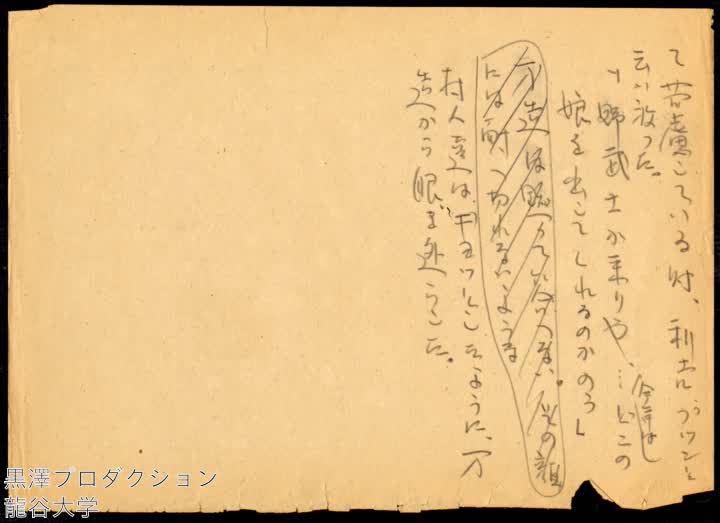 て苦慮している時、利吉がブツンと
云い放った。
「野武士が来りや、…どこの
娘を出してくれるのかのう」
万造は黙って答へない。その顔
には耐へ切れないような
村人達は、ギョッとしたように、万
造から眼を逸らした。
黒澤プロダクション
龍谷大学